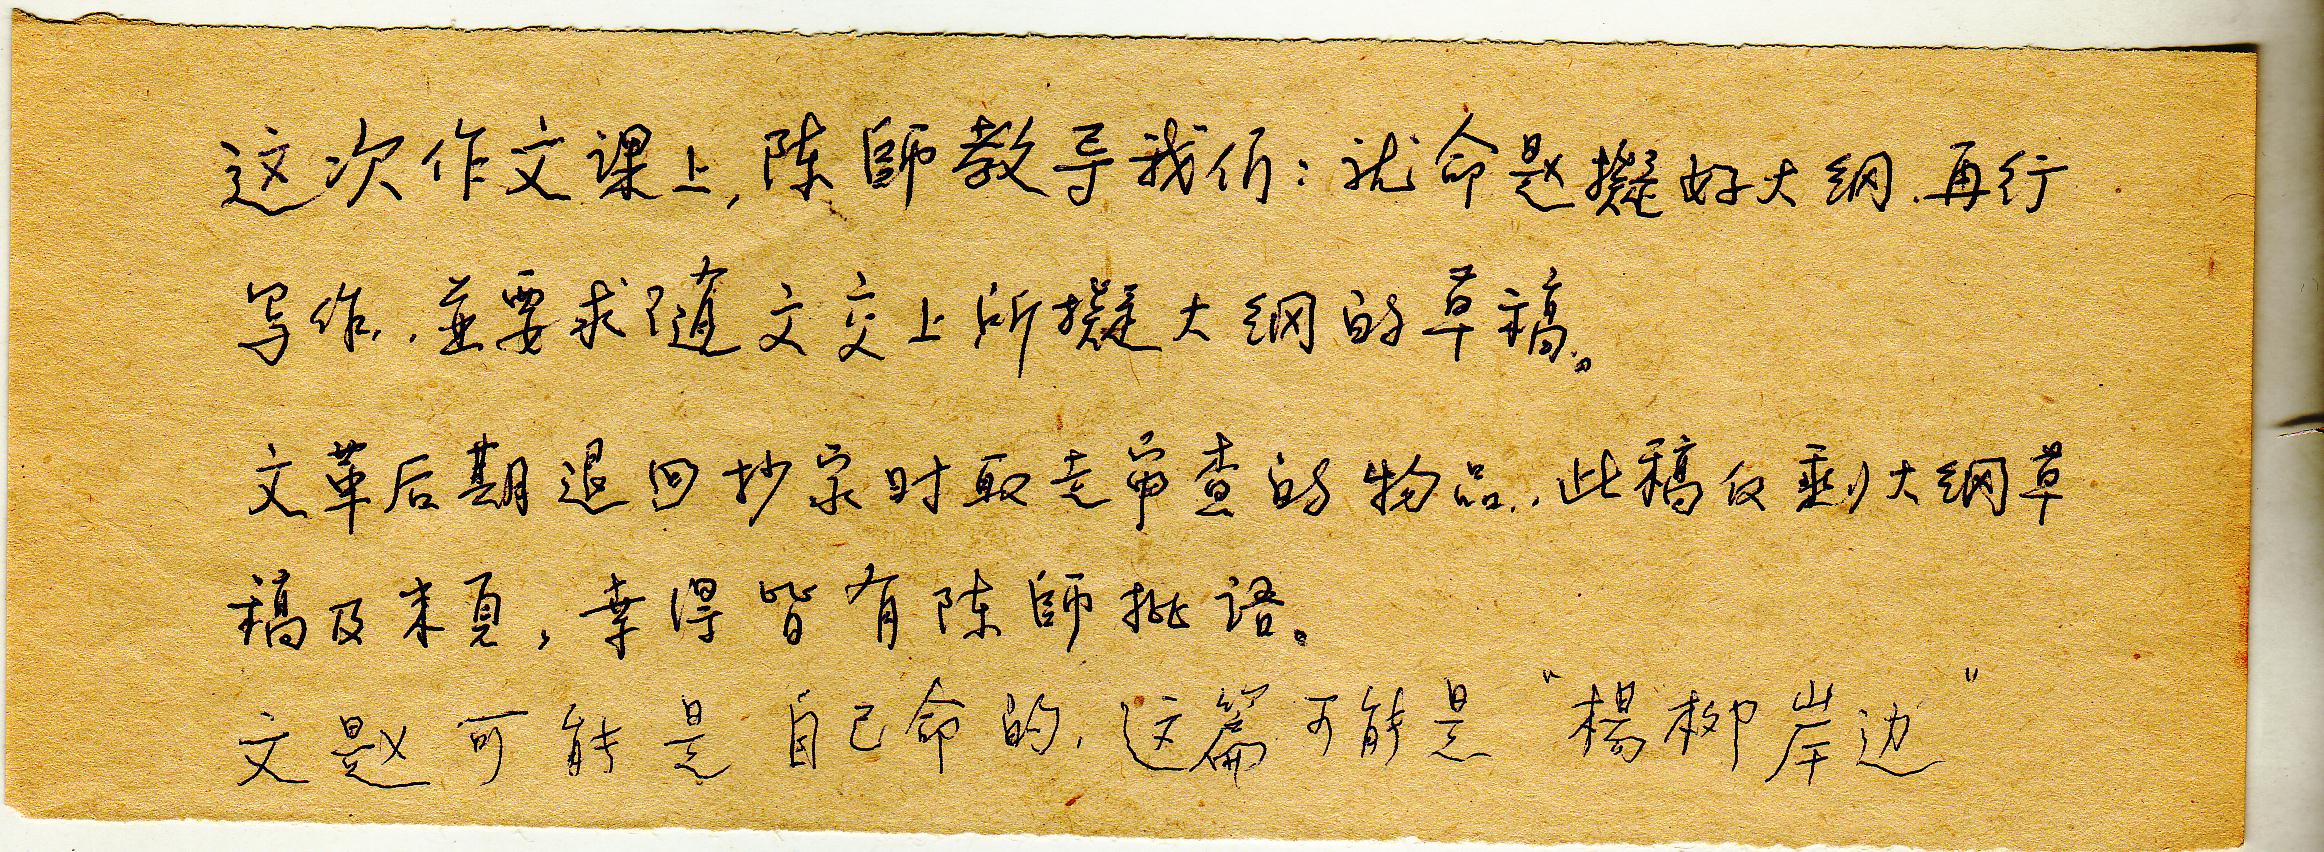 这次作文课上,陈師教导我们:就命题擬好大纲.再行
写作,並要求随文交上所擬大纲的草稿。
文革后期退回抄家时取走审查的物品,此稿仅剩大纲草
稿及末頁,幸得皆有陈師批语。
文题可能是自己命的,这篇可能是“楊柳岸边”